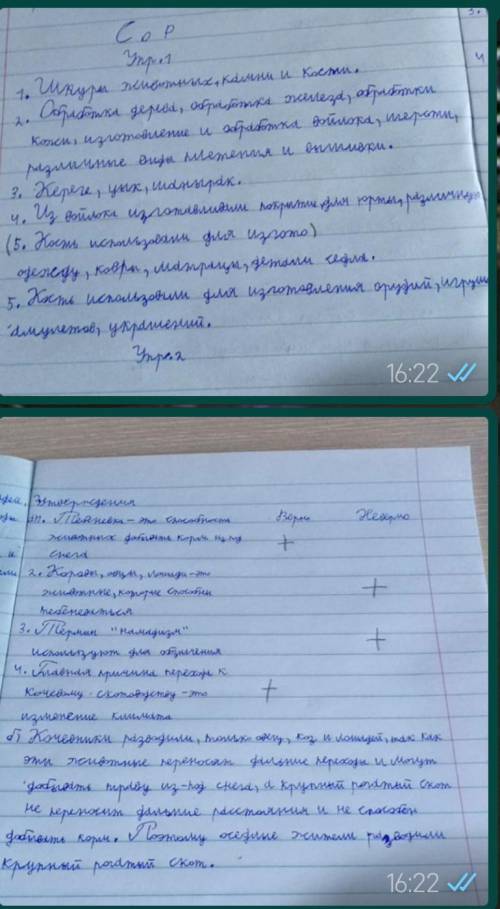 СОР
Упр.1
1. Шкуры животных, камни и кости.
2. Обработка дерева, обработка железа, обработки
кожи, изготовление и обработка войлока, шерсти,
различные виды плетения и вышивки.
3. Кереге, уык, шанырак.
4. Из войлока изготавливали покрытие для юрты, различную
(5. Кость использовали для изгото)
одежду, ковры, матрацы, детали седла.
5. Кость использовали для изготовления орудий, игруш
амулетов, украшений.
Упр.2
16:22
Утверждения
Верно Неверно
1. Тебенёвка – это способность
животных добывать корм из под
снега +
2. Коровы, овцы, лошади – это
животные, которые способны +
тебеневаться
3. Термин "намадизм" +
используют для обозначения
4. Главная причина перехода к
Кочевому скотоводству – это +
изменение климата
б) Кочевники разводили, только овец, коз и лошадей, так как
эти животные переносят дальние переходы и могут
добывать траву из-под снега, а крупный рогатый скот
не переносит дальние расстояния и не способен
добывать корм. Поэтому оседлые жители разводили
крупный рогатый скот.
16:22